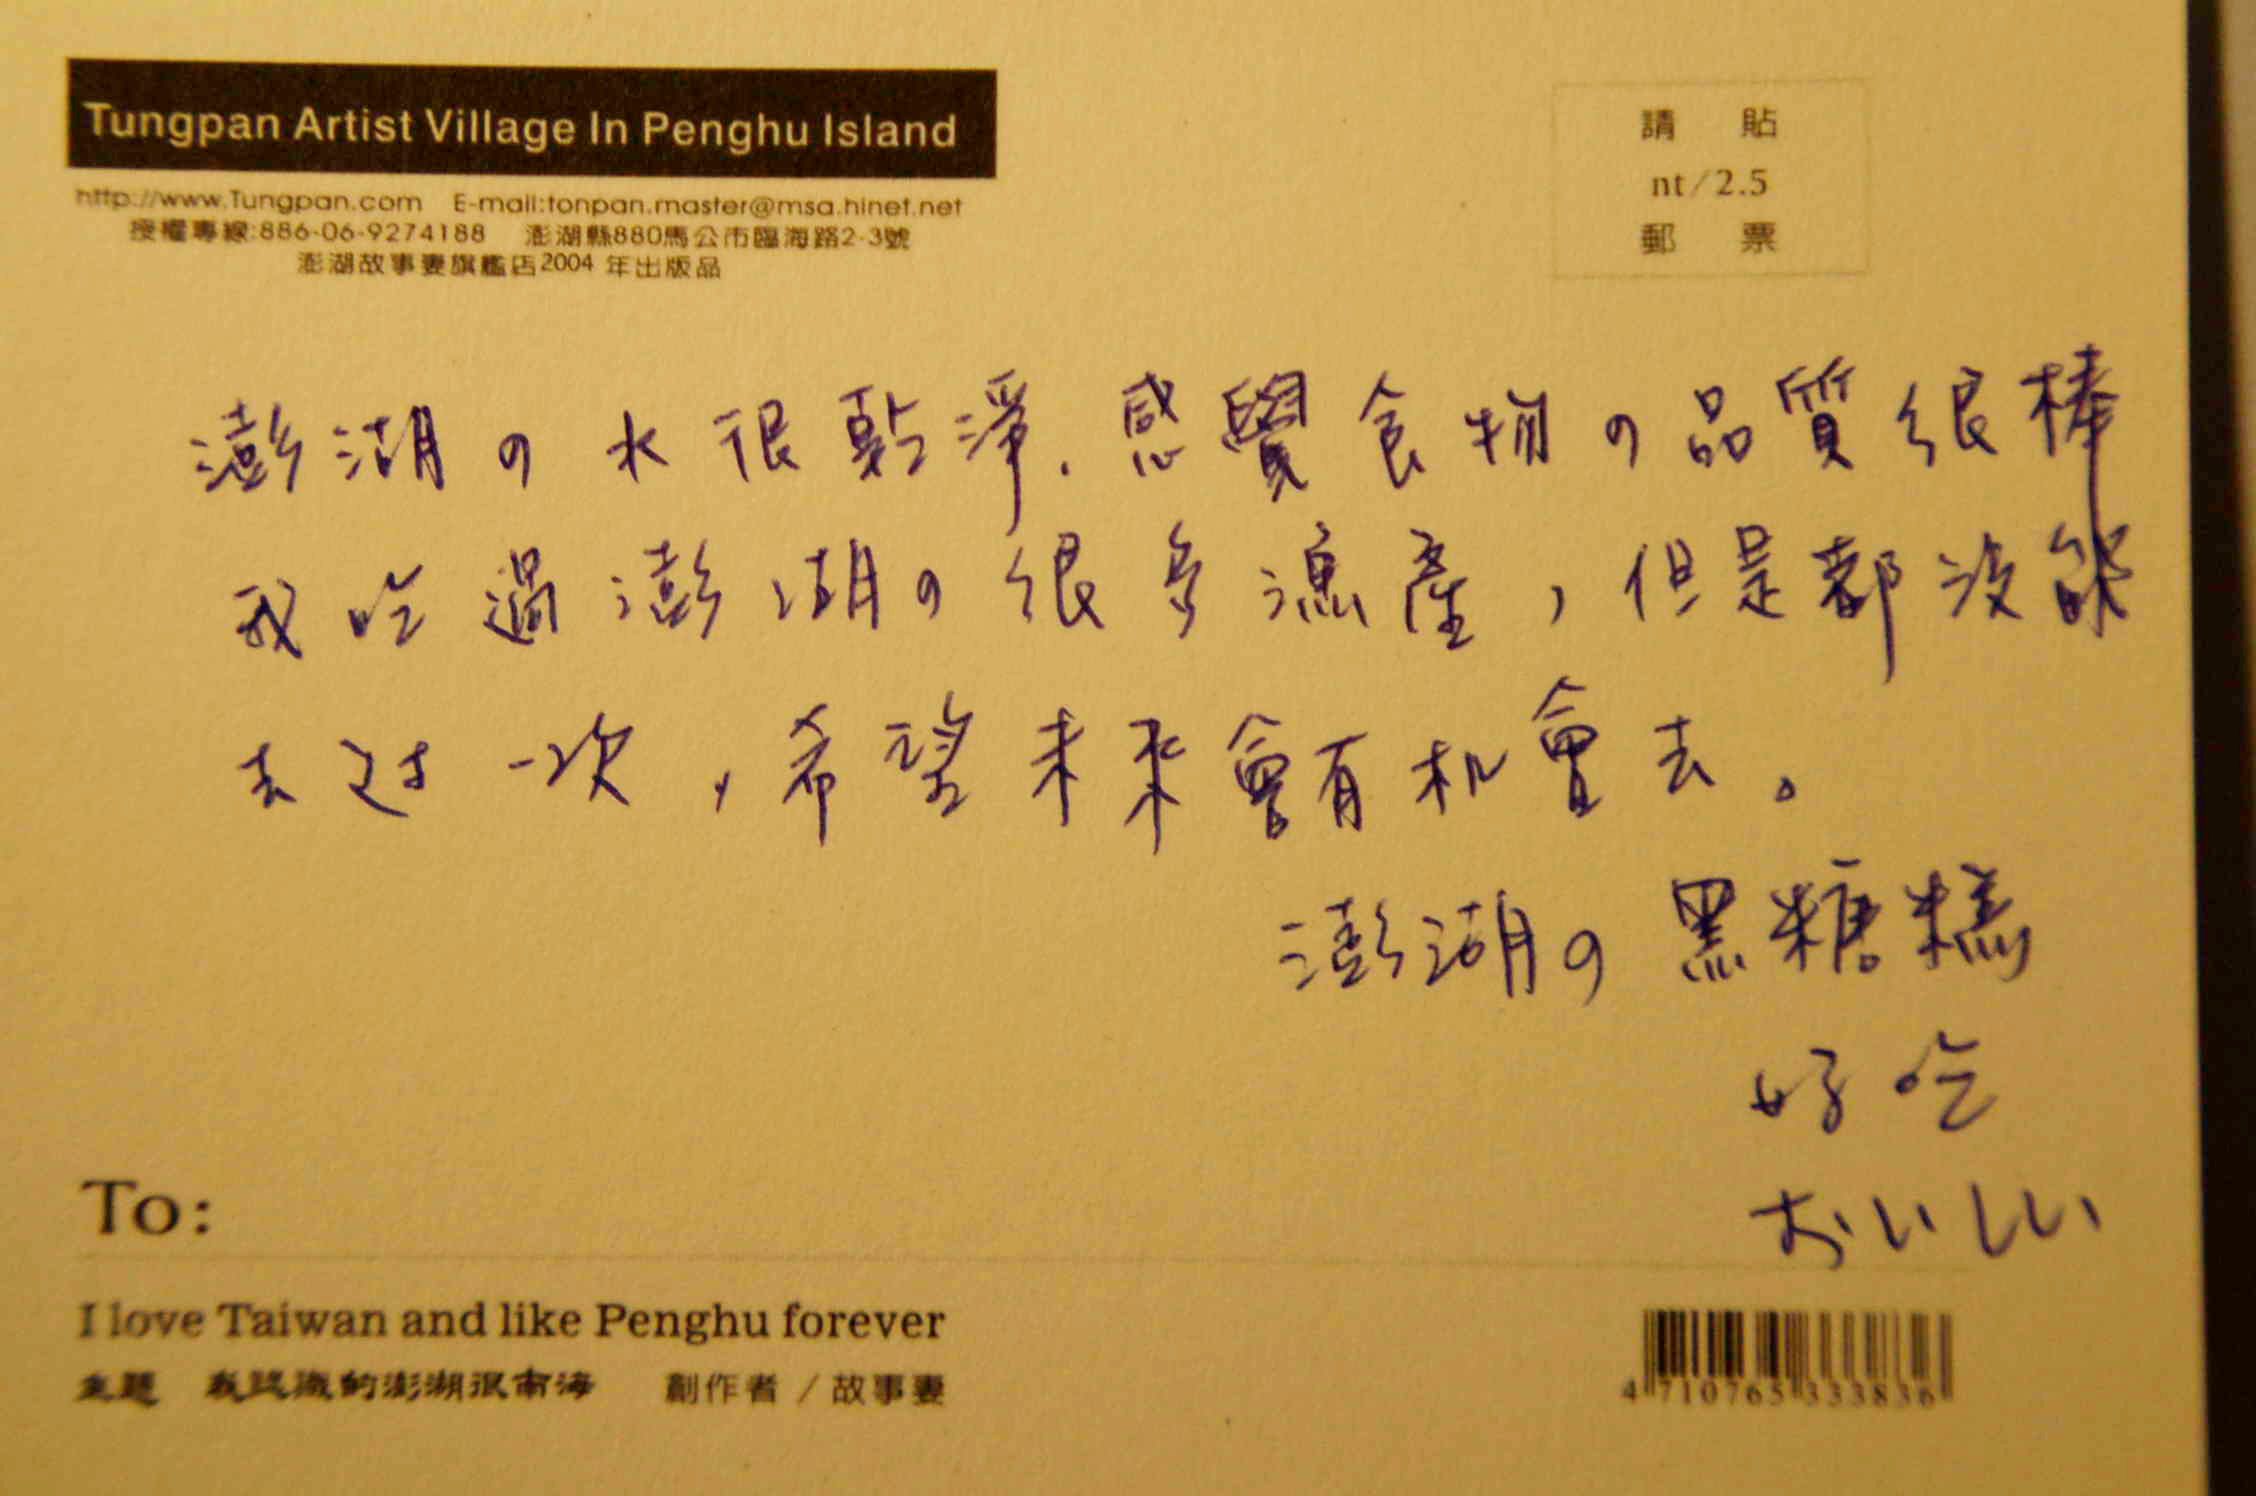 Tungpan Artist Village In Penghu Island
http://www.Tungpan.com E-mail:tonpan.master@msa.hinet.net
授權專線:886-06-9274188 澎湖縣880馬公市臨海路2-3號
澎湖故事妻旗艦店2004 年出版品
請 貼
nt/2.5
郵 票
澎湖の水很乾淨.感覺食物の品質很棒
我吃過澎湖の很多漁產,但是都没能
去过一次,希望未來會有机會去。
澎湖の黑糖糕
好吃
おいしい
To:
I love Taiwan and like Penghu forever
主題 我認識的澎湖很南海 創作者/故事妻
4 710765 333836